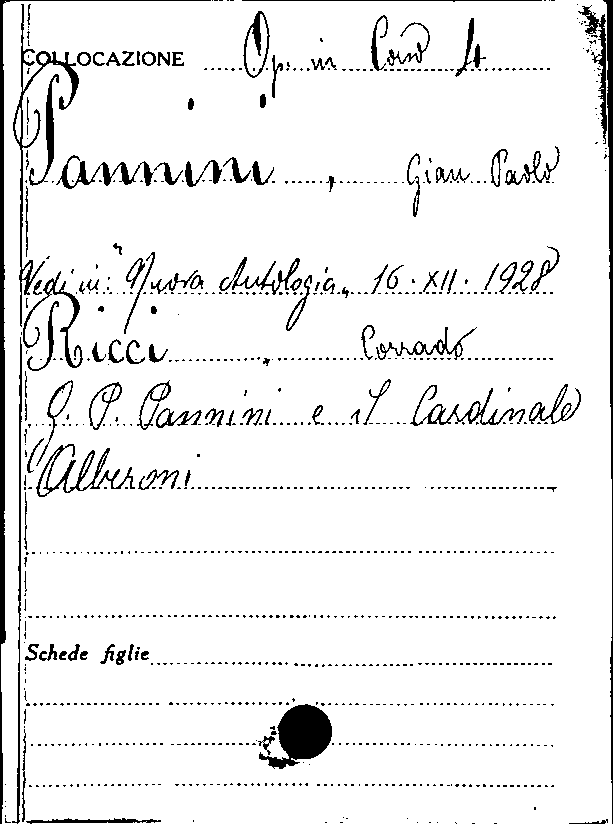 COLLOCAZIONE Op. in Cons 4
Pannini, Gian Paolo
Vedi in: "Nuova Antologia„ 16.XII.1928
Ricci, Corrado
G. P. Pannini e il Cardinale
Alberoni
Schede figlie